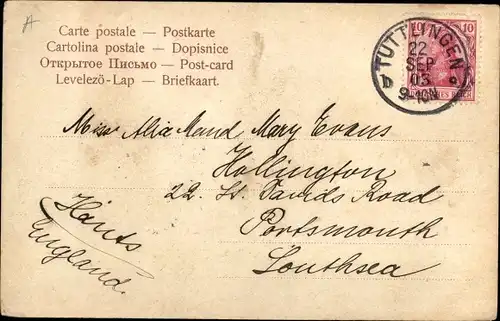 A
Carte postale — Postkarte
Cartolina postale — Dopisnice
Открытое Письмо — Post-card
Levelező-Lap — Briefkaart.
10 10
TUTTLINGEN
22
SEP
03
9-10N
b a
REICH
Miss Alia Maud Mary Evans
Hollington
22. St. Davids Road
Portsmouth
Southsea
Hants
England.